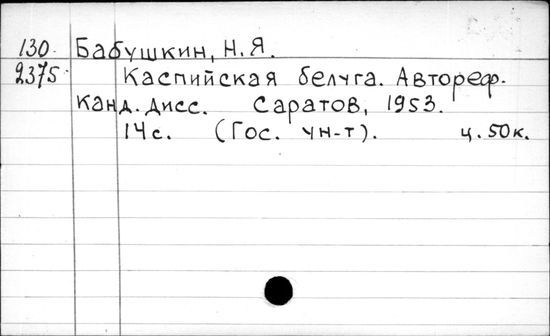 130 Бабушкин, Н.Я.
2375 Каспийская белуга. Автореф.
канд. дисс. Саратов, 1953.
14с. (Гос. ун-т). ц. 50к.